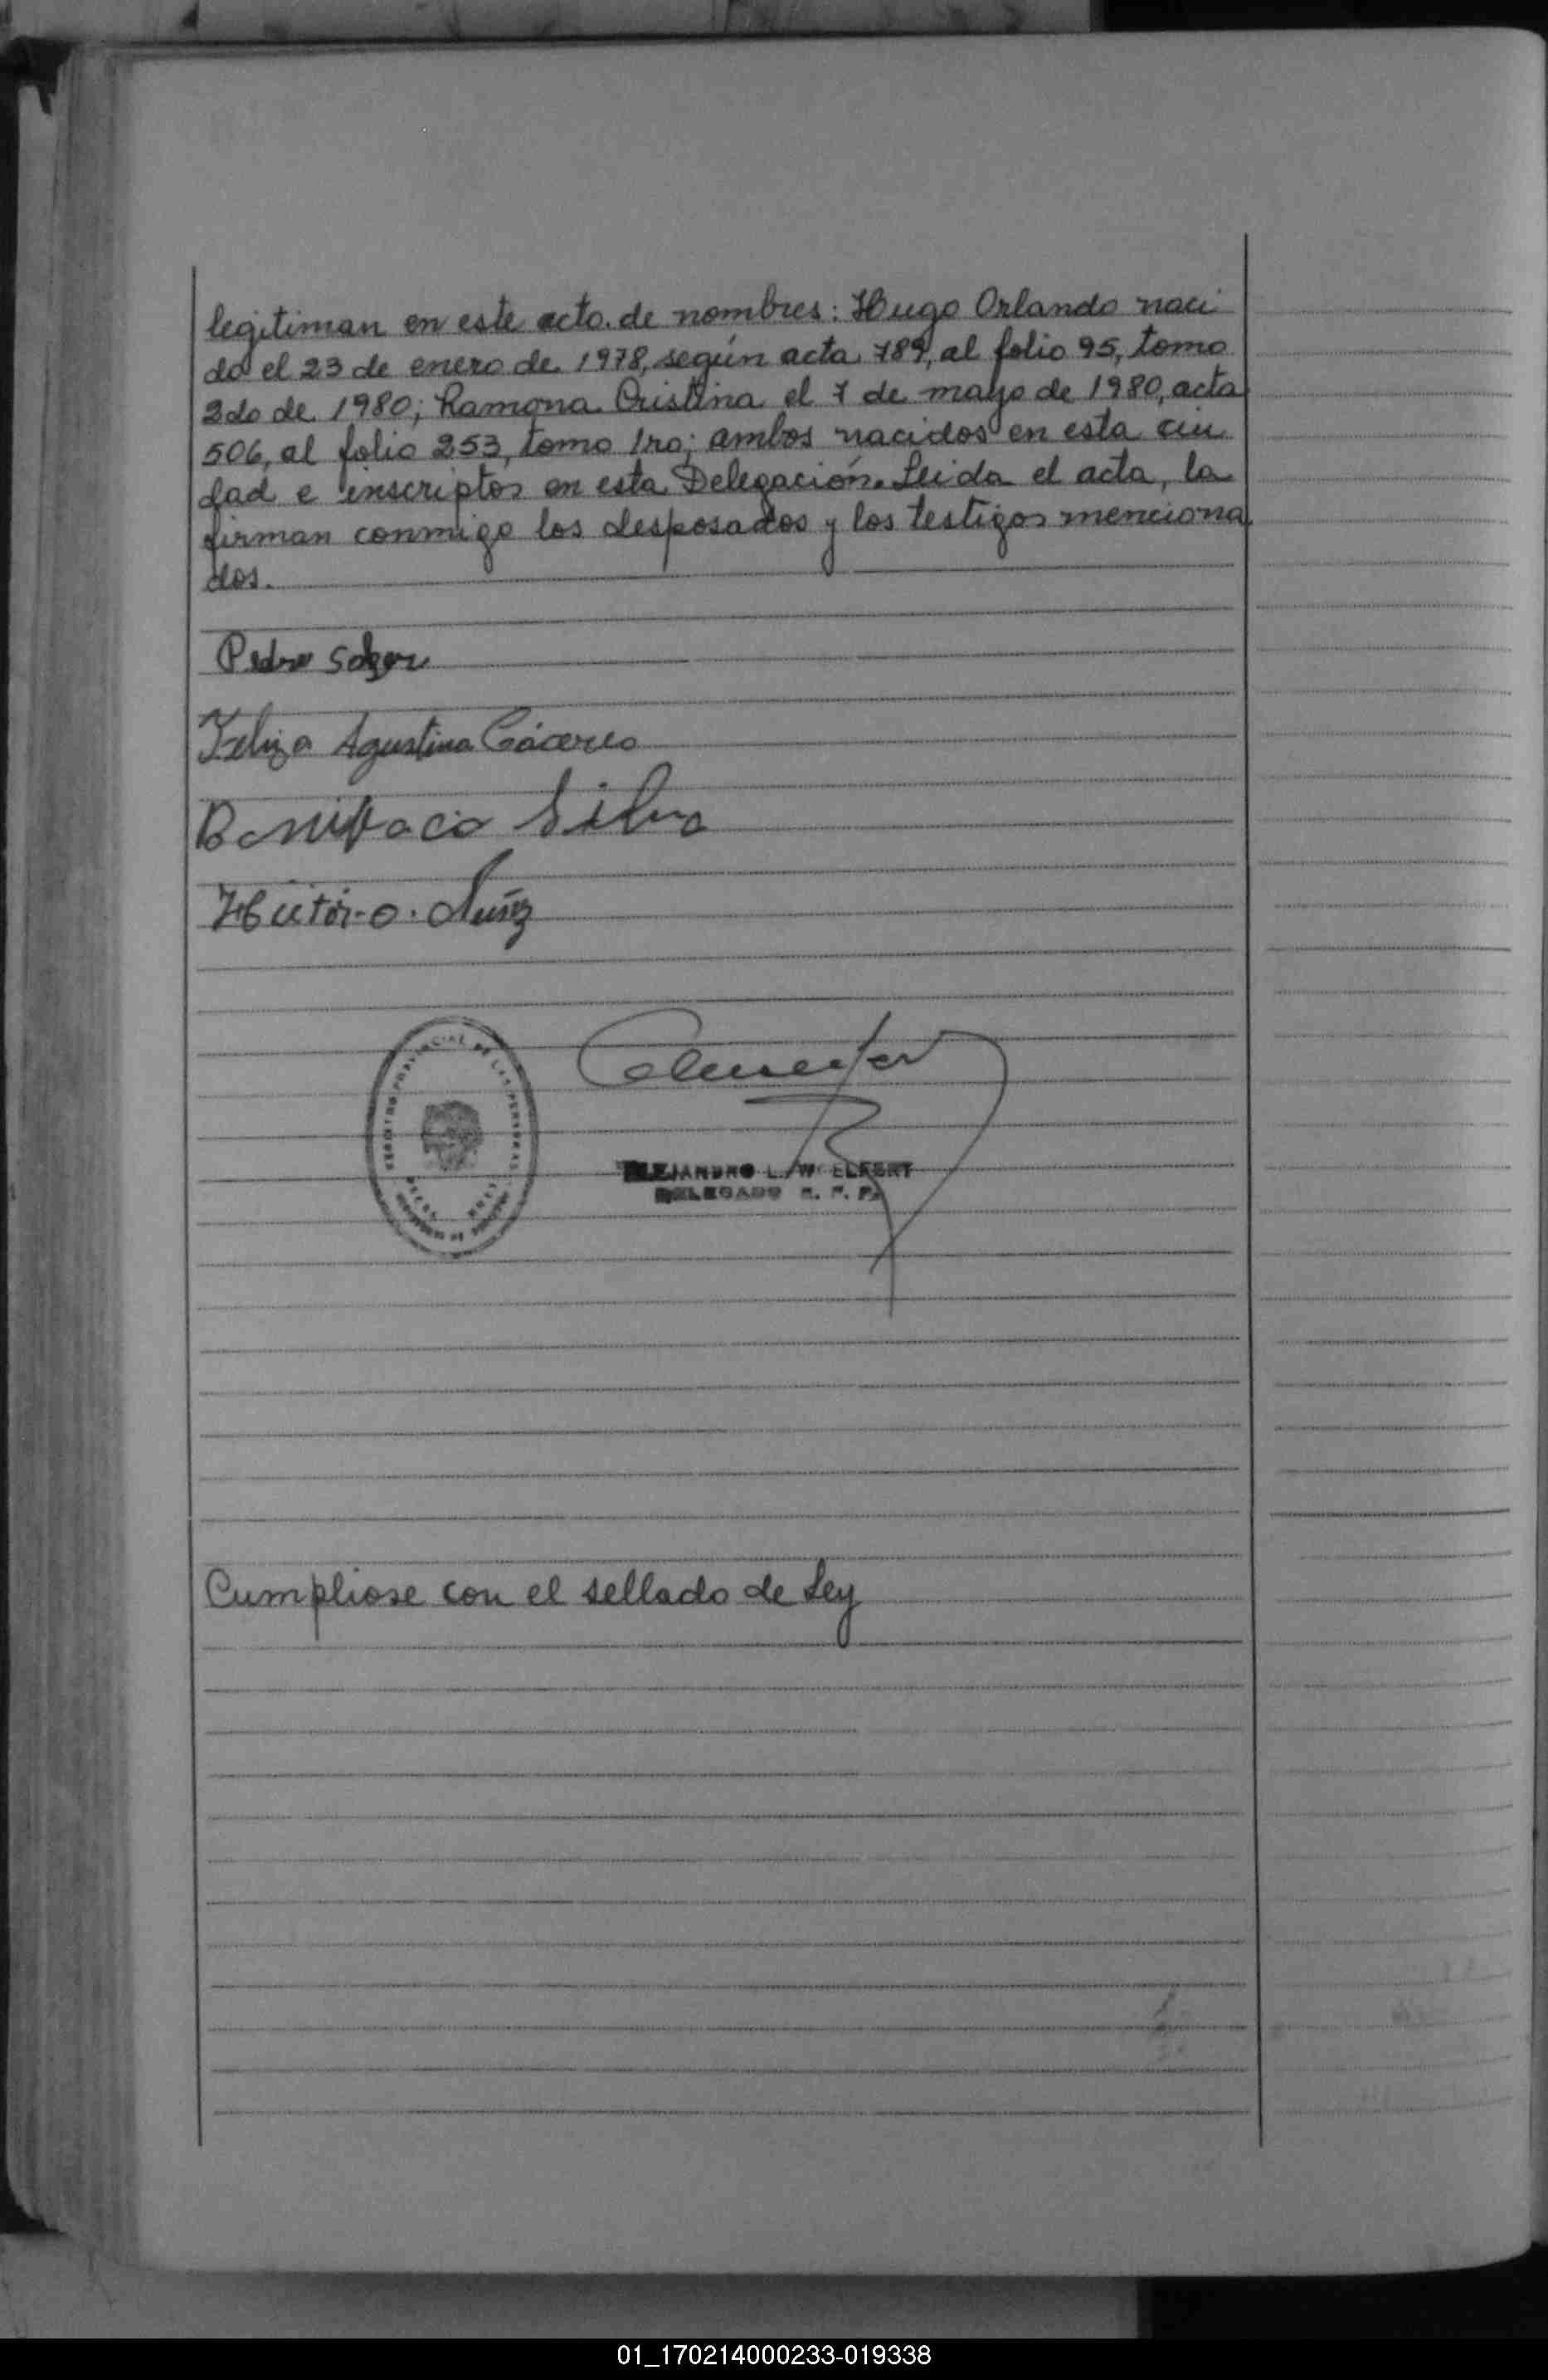 legitiman en este acto. de nombres: Hugo Orlando naci
do el 23 de enero de 1978, según acta 789, al folio 95, tomo
2do de 1980; Ramona Cristina el 7 de mayo de 1980, acta
506, al folio 253, tomo 1ro; ambos nacidos en esta ciu
dad e inscriptos en esta Delegación. Leida el acta, la
firman conmigo los desposados y los testigos menciona
dos.
Pedro
Agustina Cáceres
Bonifacio Silva
Héctor. O. Nuñez
REGISTRO PROVINCIAL DE LAS PERSONAS
ALEJANDRO L. WOELFERT
DELEGADO R. P. P.
Cumpliose con el sellado de Ley
01_170214000233-019338